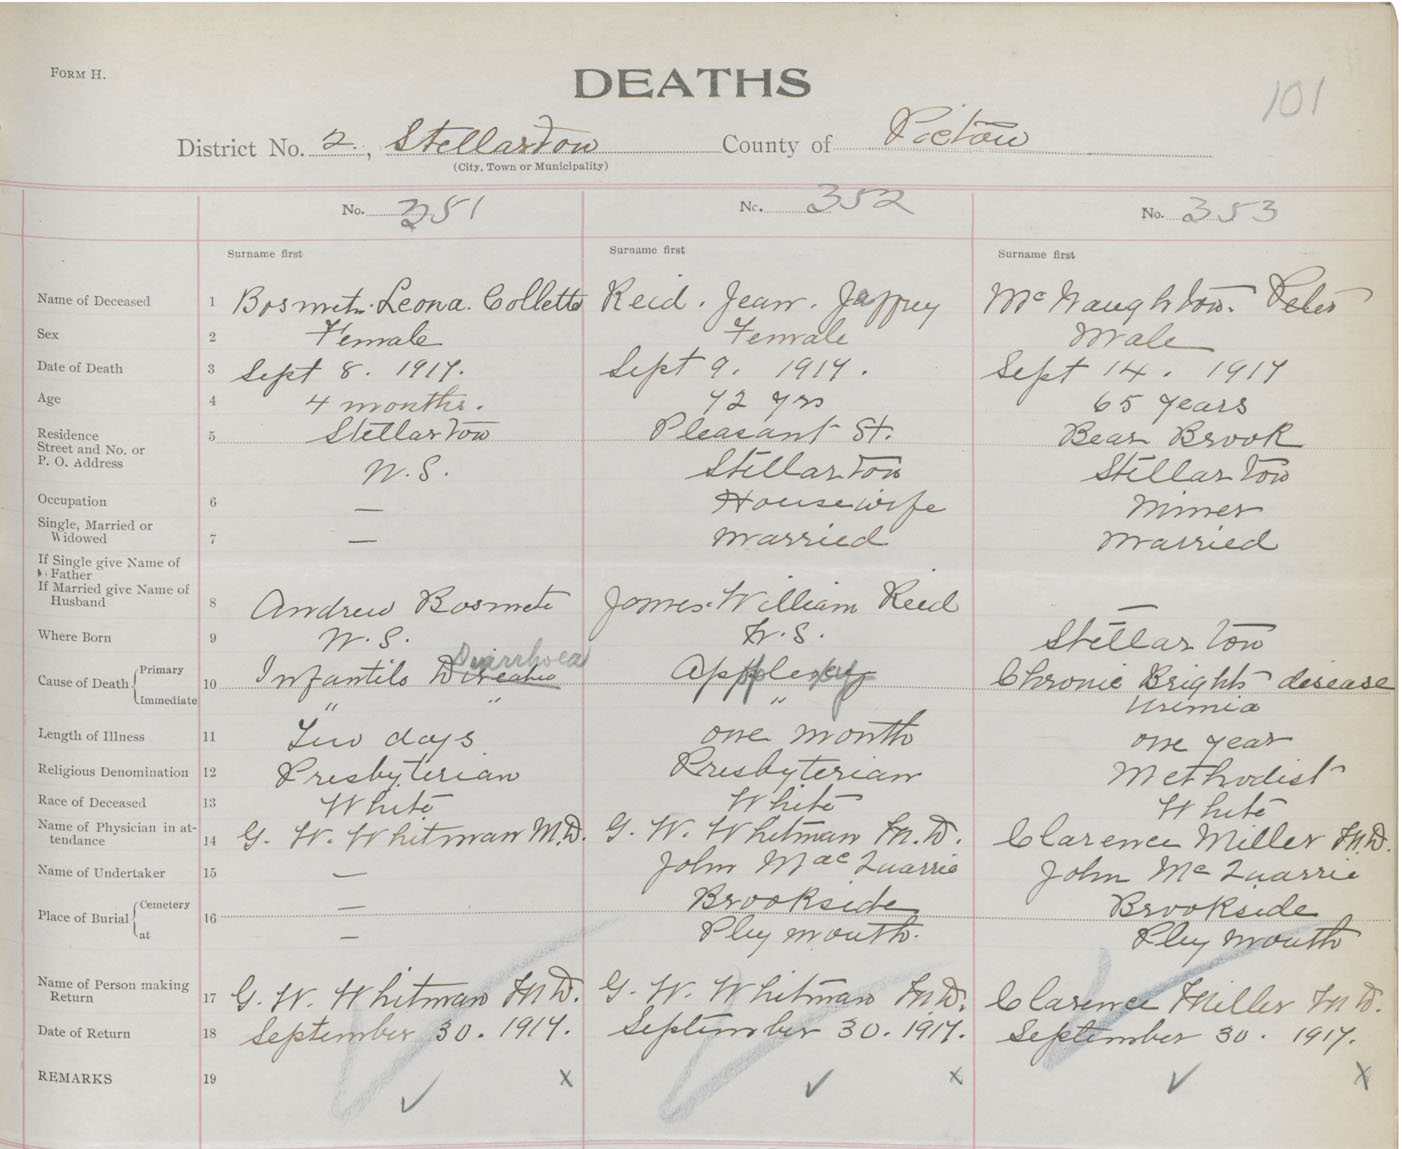 FORM H.
DEATHS
101
District No. 2, Stellarton County of Pictou
(City, Town or Municipality)
No. 351 No. 352 No. 353
Surname first Surname first Surname first
Name of Deceased 1 Leona Collette Reid. Jean. Jaffrey McNaughton. Peter
Sex 2 Female Female Male
Date of Death 3 Sept 8. 1917. Sept 9. 1917. Sept 14. 1917
Age 4 4 months. 72 yrs 65 years
Residence 5 Stellarton Pleasant St. Bear Brook
Street and No. or
P. O. Address N.S. Stellarton Stellarton
Occupation 6 — Housewife Miner
Single, Married or
Widowed 7 — Married Married
If Single give Name of
Father
If Married give Name of
Husband 8 Andrew James William Reid —
Where Born 9 N.S. N.S. Stellarton
Cause of Death { Primary Diarrhoea
10 Infantile Applexy Chronic Brights disease
Immediate " " " Uremia
Length of Illness 11 Two days one month one year
Religious Denomination 12 Presbyterian Presbyterian Methodist
Race of Deceased 13 White White White
Name of Physician in at-
tendance 14 G. W. Whitman M.D. G. W. Whitman M.D. Clarence Miller M.D.
Name of Undertaker 15 — John MacQuarrie John McQuarrie
Place of Burial { Cemetery 16 — Brookside Brookside
at — Plymouth. Plymouth
Name of Person making
Return 17 G. W. Whitman M.D. G. W. Whitman M.D. Clarence Miller M.D.
Date of Return 18 September 30. 1917. September 30. 1917. September 30. 1917.
REMARKS 19 ✓ x ✓ x ✓ x